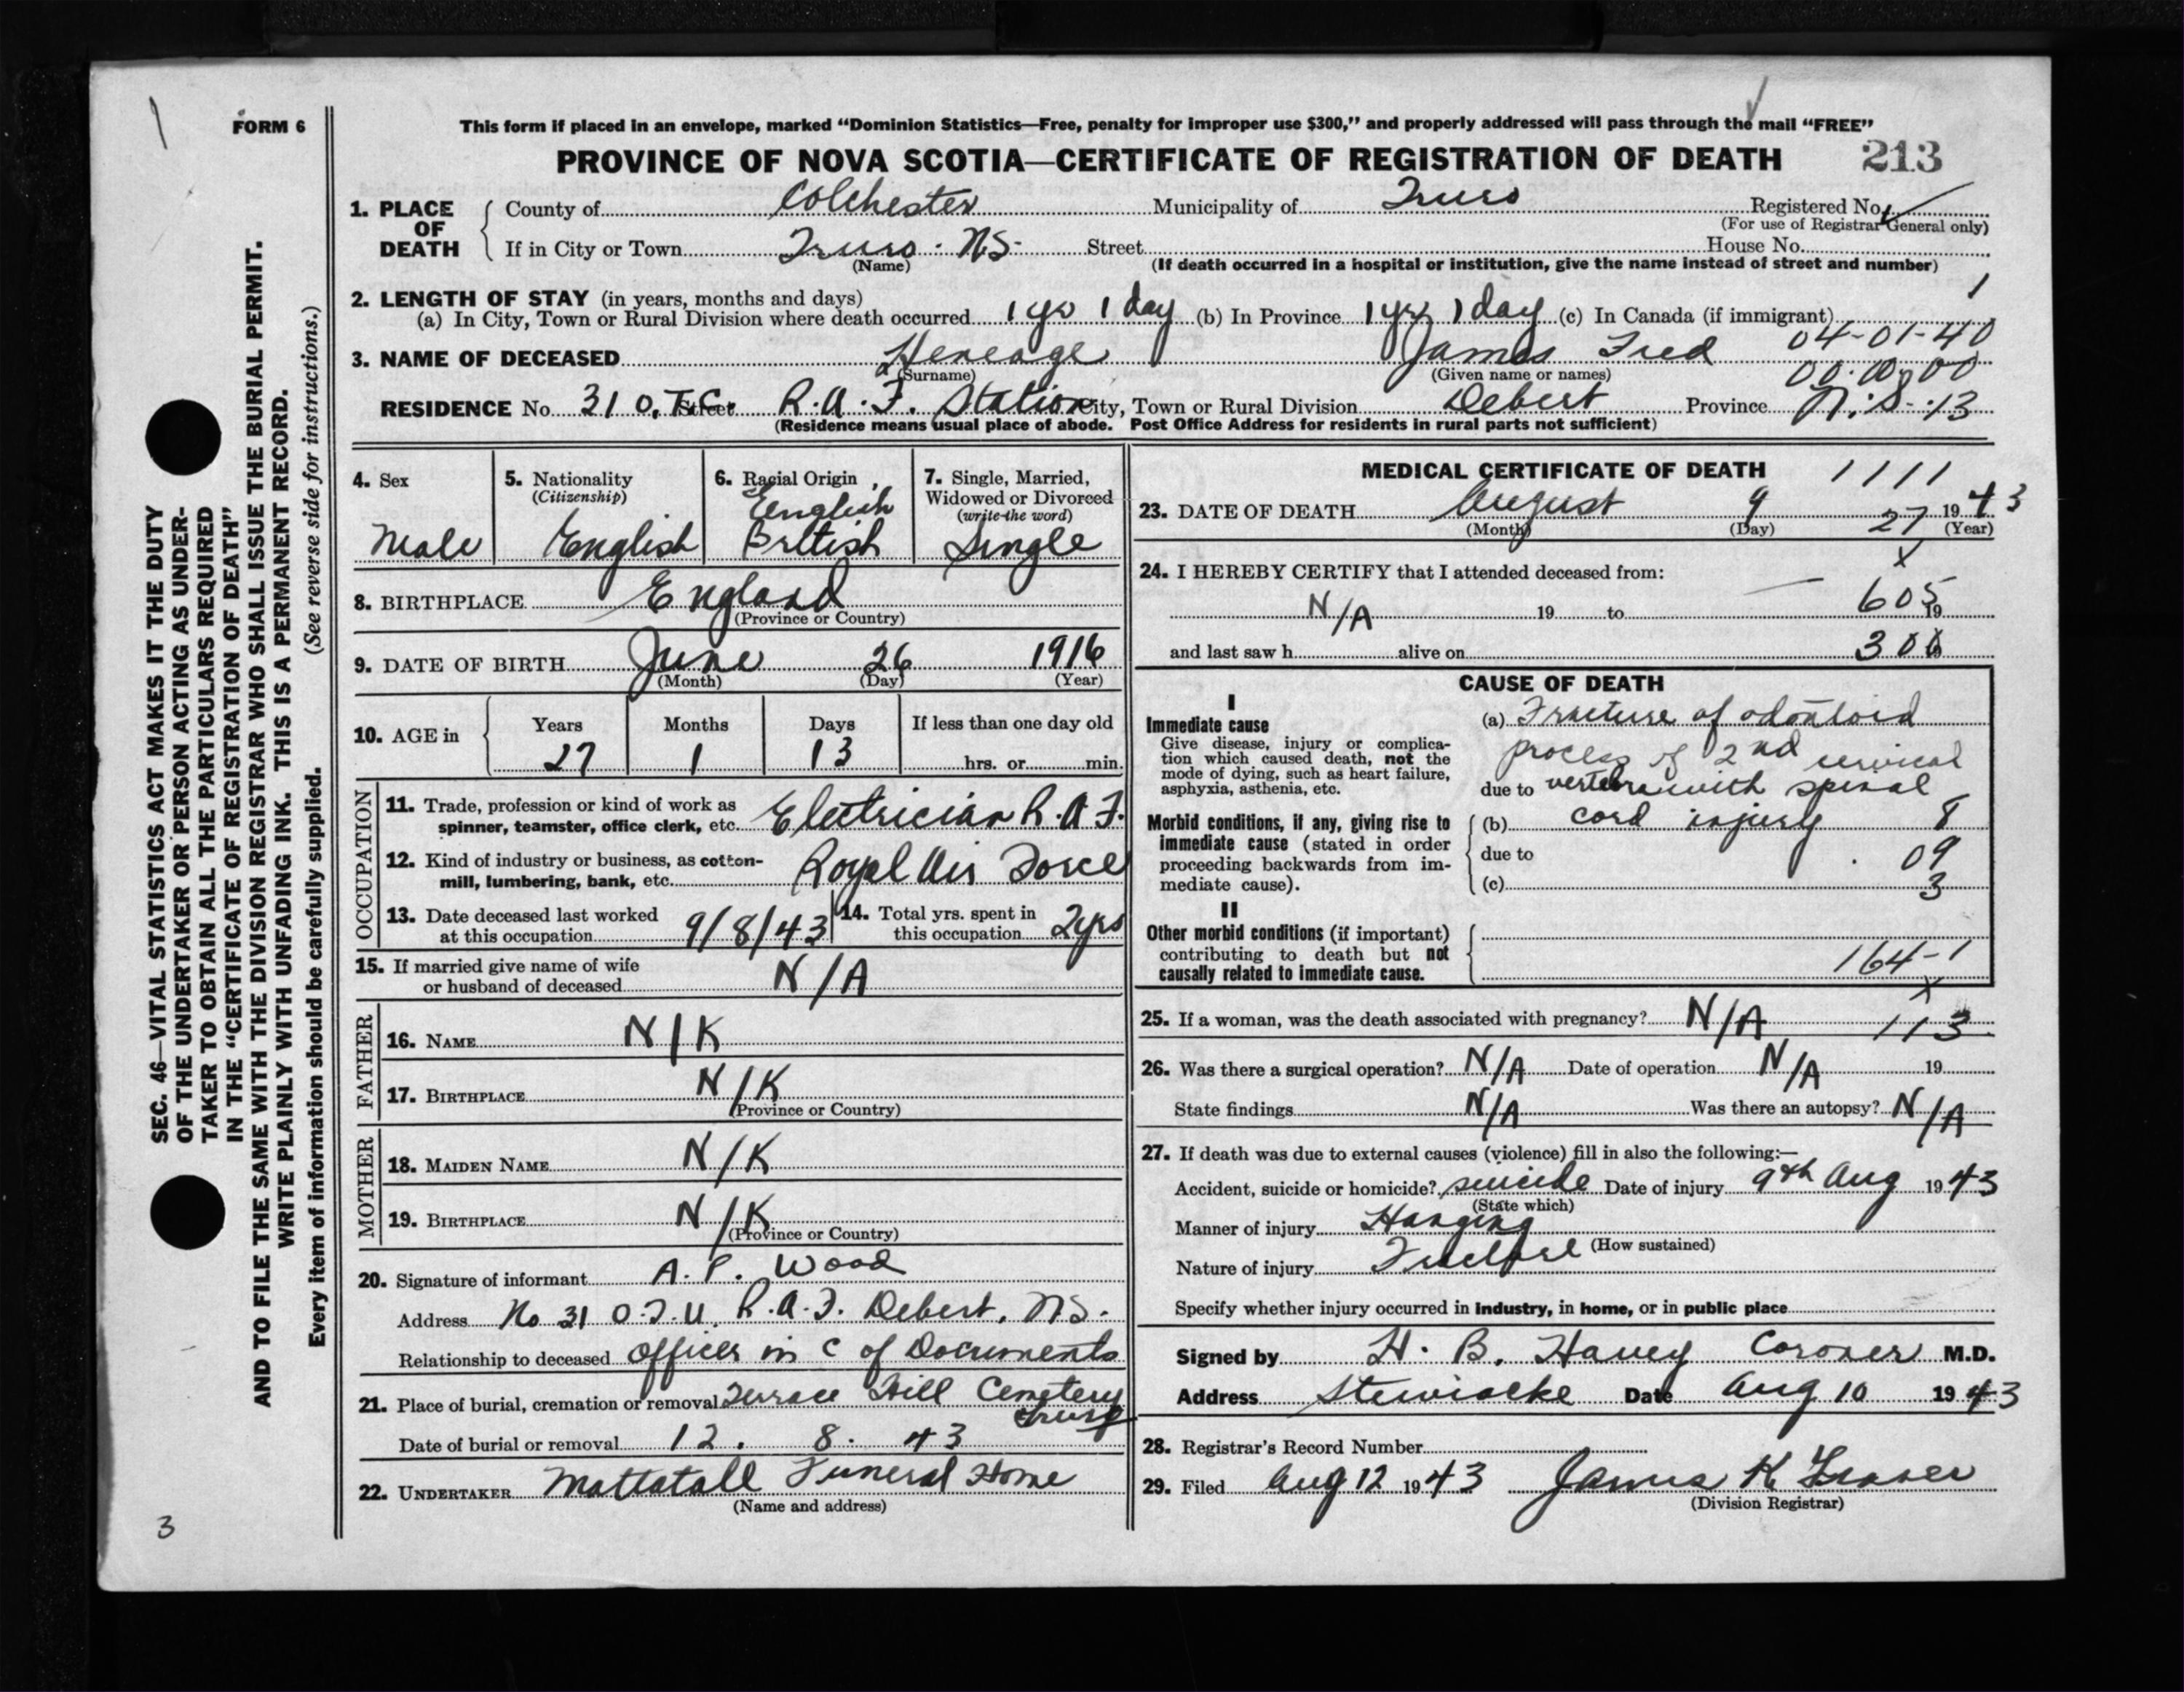 FORM 6
This form if placed in an envelope, marked “Dominion Statistics—Free, penalty for improper use $300,” and properly addressed will pass through the mail “FREE”
PROVINCE OF NOVA SCOTIA—CERTIFICATE OF REGISTRATION OF DEATH 213
1. PLACE OF DEATH County of Colchester Municipality of Truro Registered No.
(For use of Registrar General only)
If in City or Town Truro. NS. Street House No.
(Name) (If death occurred in a hospital or institution, give the name instead of street and number)
2. LENGTH OF STAY (in years, months and days) 1
(a) In City, Town or Rural Division where death occurred 1 yr 1 day (b) In Province 1 yr 1 day (c) In Canada (if immigrant)
04-01-40
3. NAME OF DECEASED Heneage James Fred
(Surname) (Given name or names) 00.00.00
RESIDENCE No. 31 O.T.C. Street R.A.F. Station City, Town or Rural Division Debert Province N.S. 13
(Residence means usual place of abode. Post Office Address for residents in rural parts not sufficient)
4. Sex Male
5. Nationality (Citizenship) English
6. Racial Origin English British
7. Single, Married, Widowed or Divorced (write the word) Single
8. BIRTHPLACE England
(Province or Country)
9. DATE OF BIRTH June 26 1916
(Month) (Day) (Year)
10. AGE in Years 27 Months 1 Days 13 If less than one day old hrs. or min.
OCCUPATION
11. Trade, profession or kind of work as spinner, teamster, office clerk, etc. Electrician R.A.F.
12. Kind of industry or business, as cotton-mill, lumbering, bank, etc. Royal Air Force
13. Date deceased last worked at this occupation 9/8/43 14. Total yrs. spent in this occupation 2yrs
15. If married give name of wife or husband of deceased N/A
FATHER
16. NAME N/K
17. BIRTHPLACE N/K
(Province or Country)
MOTHER
18. MAIDEN NAME N/K
19. BIRTHPLACE N/K
(Province or Country)
20. Signature of informant A. P. Wood
Address No 31 O.T.U. R.A.F. Debert, NS.
Relationship to deceased Officer in C of Documents
21. Place of burial, cremation or removal Terrace Hill Cemetery
Truro
Date of burial or removal 12. 8. 43
22. UNDERTAKER Mattatall Funeral Home
(Name and address)
MEDICAL CERTIFICATE OF DEATH 1111
23. DATE OF DEATH August 9 1943
(Month) (Day) 27 (Year)
24. I HEREBY CERTIFY that I attended deceased from: x
N/A 19 to 605 19
and last saw h alive on 300
CAUSE OF DEATH
I
Immediate cause
Give disease, injury or complica-
tion which caused death, not the
mode of dying, such as heart failure,
asphyxia, asthenia, etc.
(a) Fracture of odontoid
process of 2nd cervical
due to vertebra with spinal
Morbid conditions, if any, giving rise to
immediate cause (stated in order
proceeding backwards from im-
mediate cause).
(b) cord injury 8
due to 09
(c) 3
II
Other morbid conditions (if important)
contributing to death but not
causally related to immediate cause.
164-1
x
25. If a woman, was the death associated with pregnancy? N/A 113
26. Was there a surgical operation? N/A Date of operation N/A 19
State findings N/A Was there an autopsy? N/A
27. If death was due to external causes (violence) fill in also the following:—
Accident, suicide or homicide? suicide Date of injury 9th Aug 1943
(State which)
Manner of injury Hanging
(How sustained)
Nature of injury Fracture
Specify whether injury occurred in industry, in home, or in public place
Signed by H. B. Havey Coroner M.D.
Address Stewiacke Date Aug 10 1943
28. Registrar's Record Number
29. Filed Aug 12 1943 James K Fraser
(Division Registrar)
SEC. 46—VITAL STATISTICS ACT MAKES IT THE DUTY
OF THE UNDERTAKER OR PERSON ACTING AS UNDER-
TAKER TO OBTAIN ALL THE PARTICULARS REQUIRED
IN THE “CERTIFICATE OF REGISTRATION OF DEATH”
AND TO FILE THE SAME WITH THE DIVISION REGISTRAR WHO SHALL ISSUE THE BURIAL PERMIT.
WRITE PLAINLY WITH UNFADING INK. THIS IS A PERMANENT RECORD.
Every item of information should be carefully supplied. (See reverse side for instructions.)
3